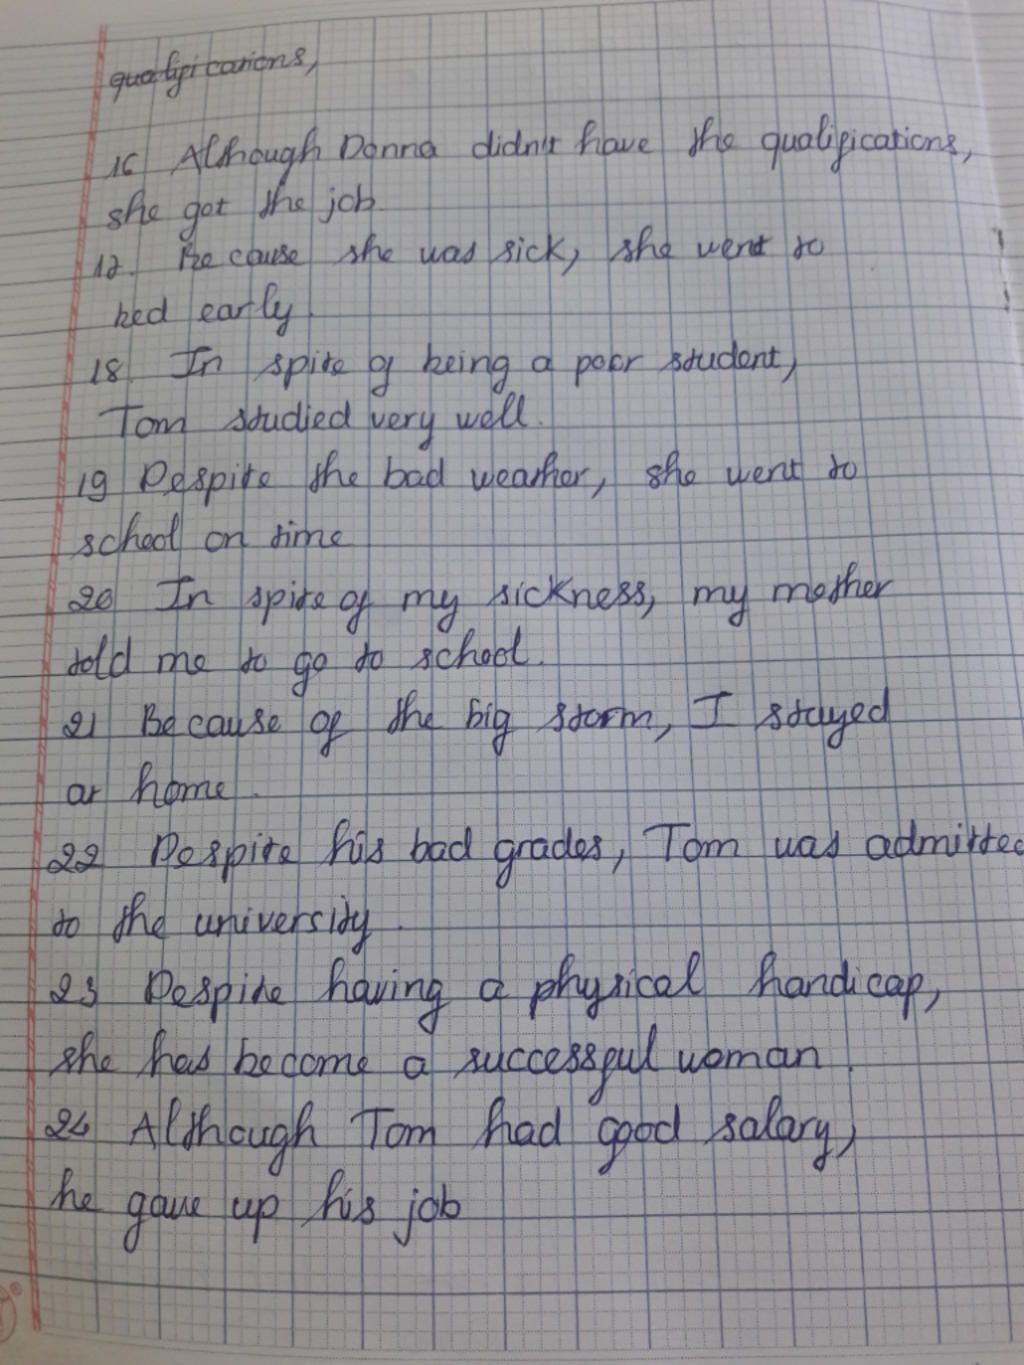 qualifications,
16 Although Donna didn't have the qualifications,
she got the job.
17. Because she was sick, she went to
bed early.
18. In spite of being a poor student,
Tom studied very well.
19 Despite the bad weather, she went to
school on time
20 In spite of my sickness, my mother
told me to go to school.
21 Because of the big storm, I stayed
at home.
22 Despite his bad grades, Tom was admitted
to the university.
23 Despite having a physical handicap,
she has become a successful woman.
24 Although Tom had good salary,
he gave up his job